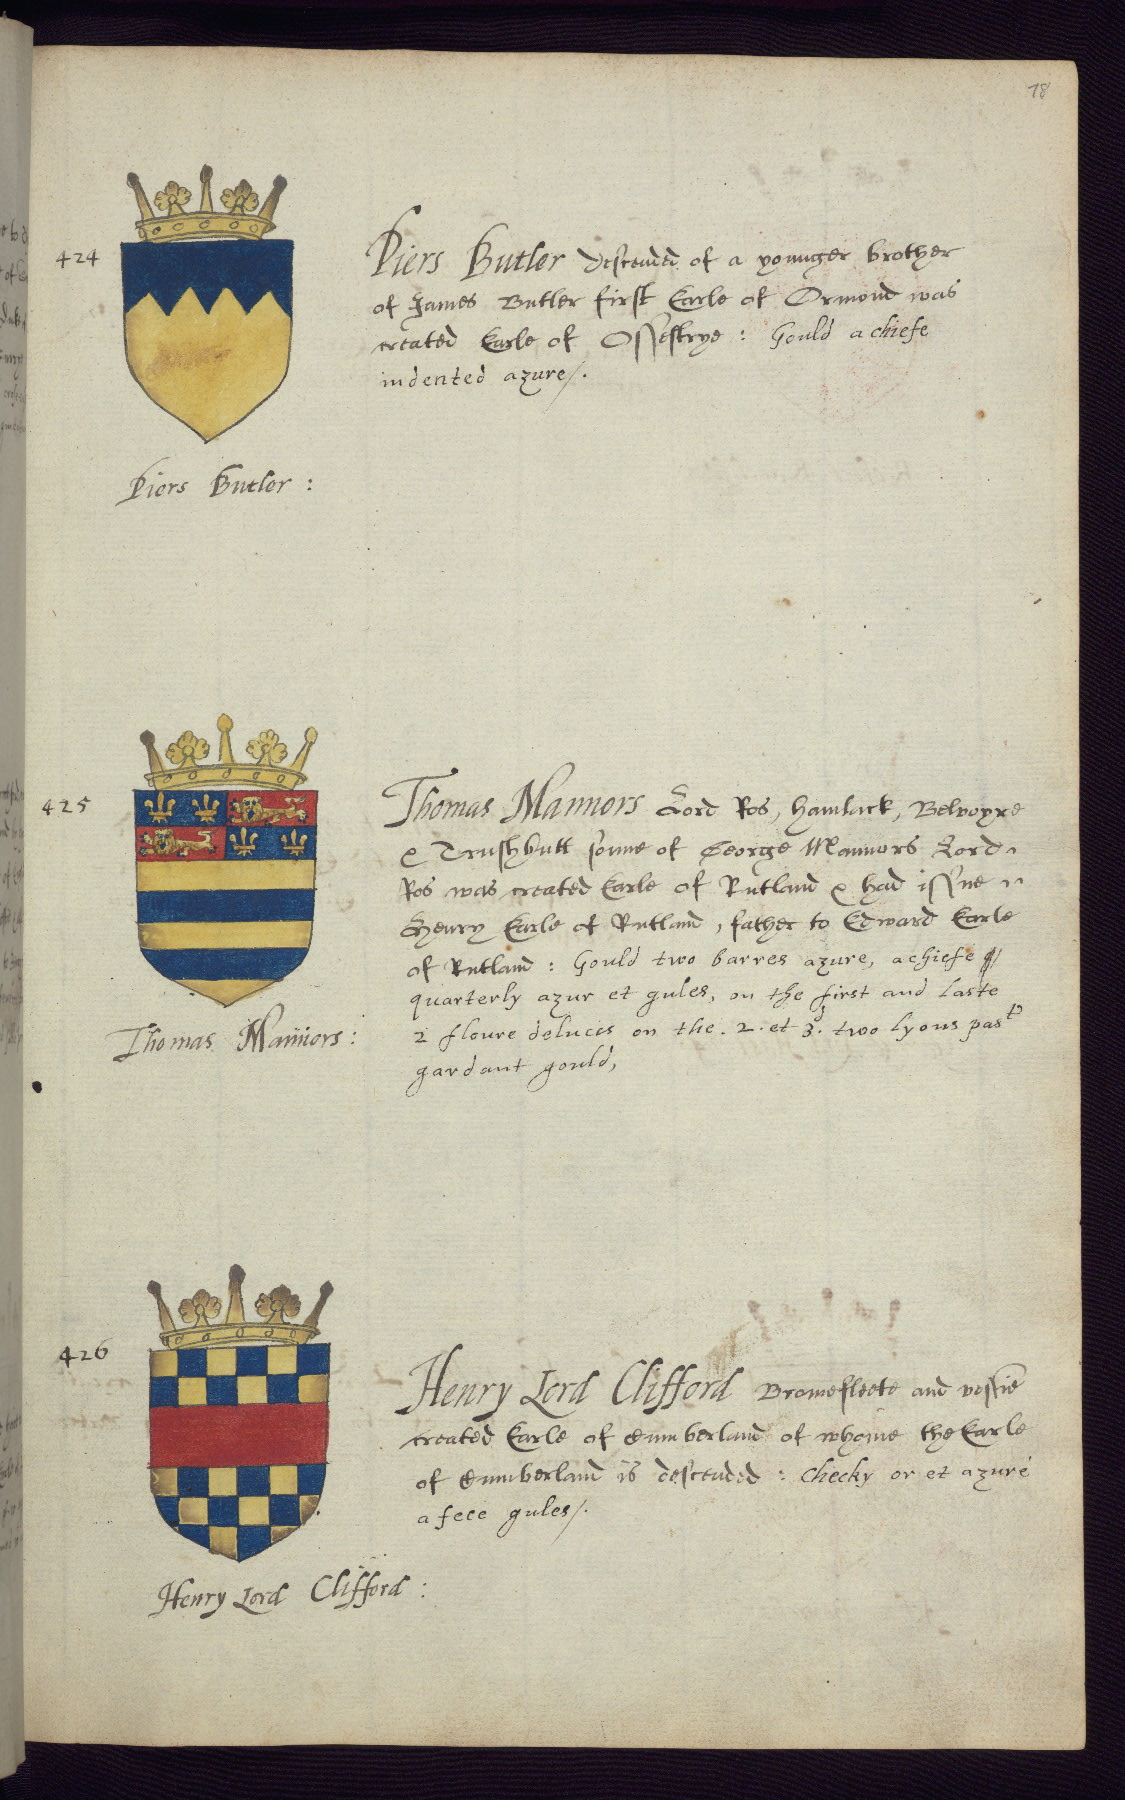 78
424
Piers Butler descended of a younger brother
of James Butler first Earle of Ormond was
created Earle of Ossestrye : Gould a chiefe
indented azure /.
Piers Butler :
425
Thomas Mannors Lord Ros, Hamlack, Belvoyre
& Trushbutt sonne of George Mannors Lord
Ros was created Earle of Rutland & had issue
Henry Earle of Rutland, father to Edward Earle
of Rutland : Gould two barres azure, a chiefe
quarterly azur et gules, on the first and laste
2 floure deluces on the .2. et 3. two lyons pas
gardant gould,
Thomas Mannors :
426
Henry Lord Clifford Bromefleete and vessie
created Earle of Cumberland of whome the Earle
of Cumberland is descended : Checky or et azure
a fece gules /.
Henry Lord Clifford :